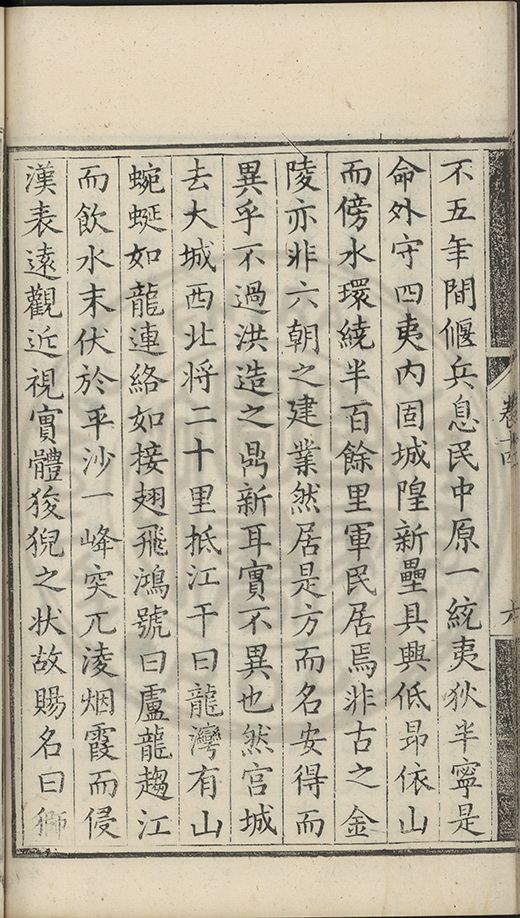 不五年間偃兵息民中原一統夷狄半寧是
命外守四夷內固城隍新壘具興低昂依山
而傍水環繞半百餘里軍民居焉非古之金
陵亦非六朝之建業然居是方而名安得而
異乎不過洪造之鼎新耳實不異也然宮城
去大城西北将二十里抵江干曰龍灣有山
蜿蜒如龍連絡如接翅飛鴻號曰盧龍趨江
而飲水末伏於平沙一峰突兀淩烟霞而侵
漢表遠觀近視實體狻猊之状故賜名曰獅
卷十四
六